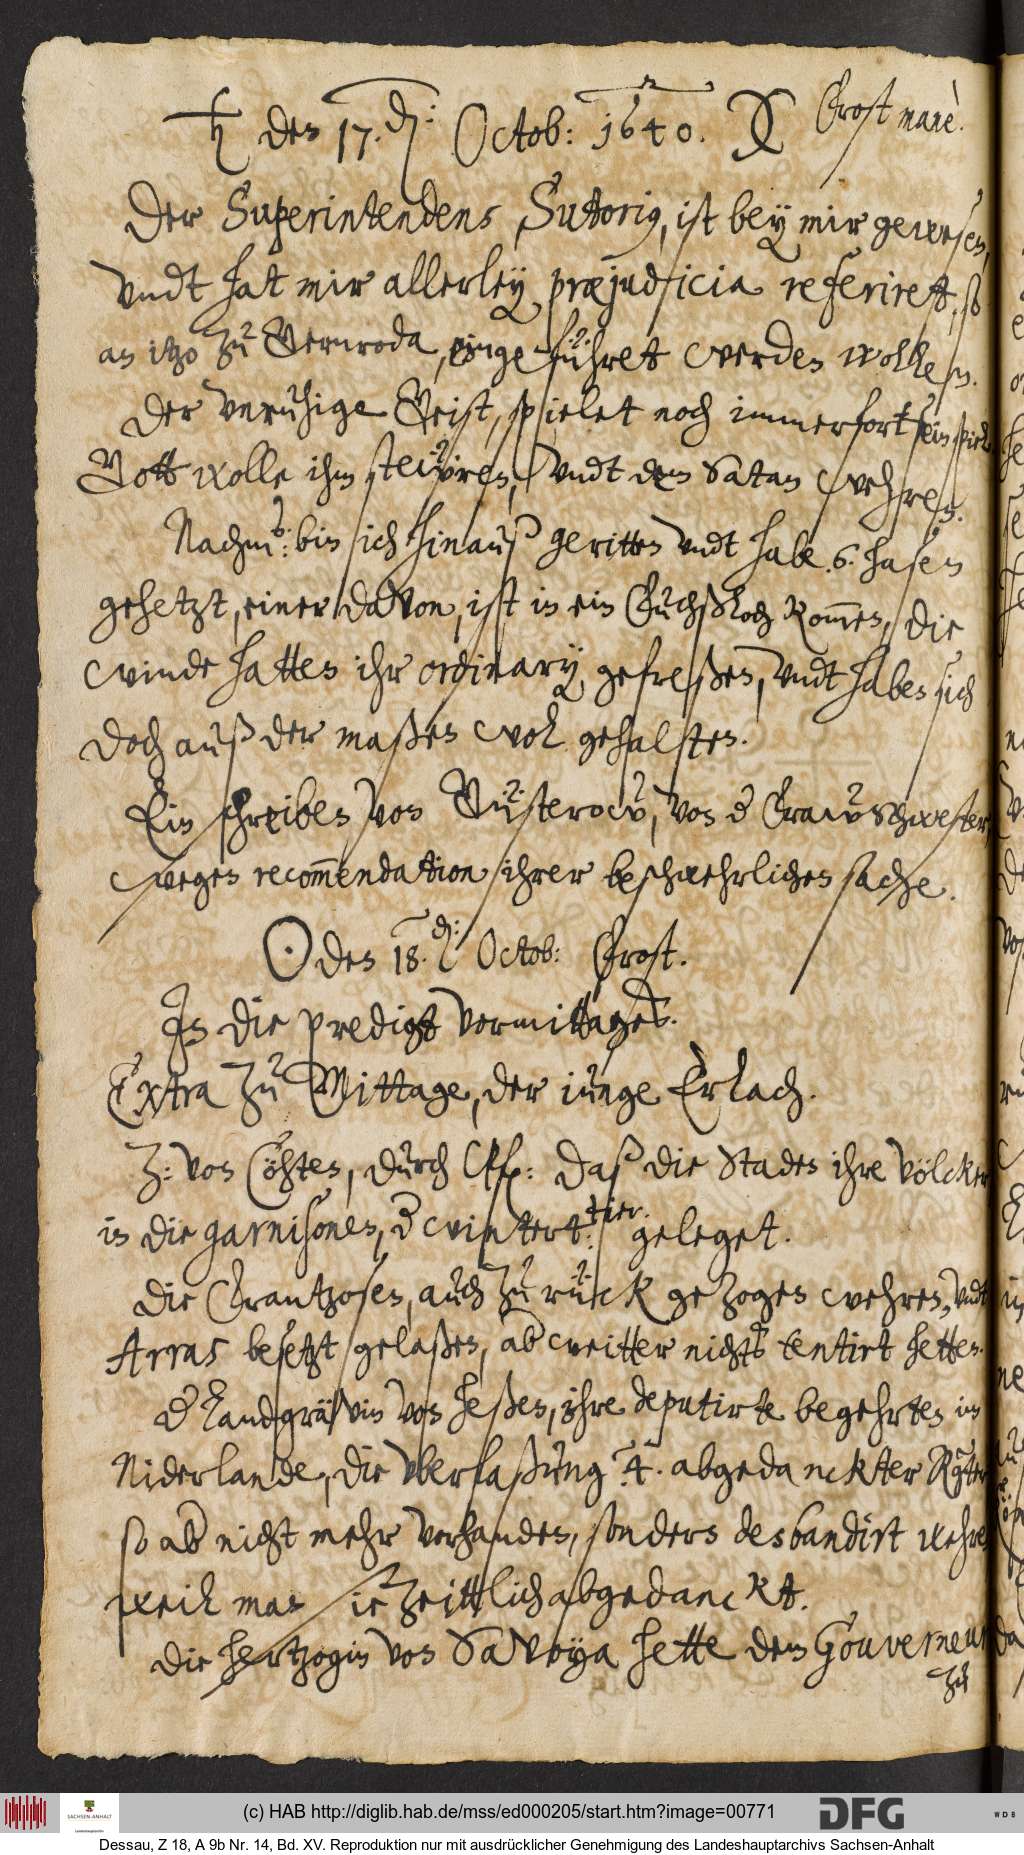 ♄ den 17. d: Octob: 1640. Frost manè.
Der Superintendens, Sutorius, ist bey mir gewesen,
vndt hat mir allerley præjudicia referiret, so
an itzo zu Gernroda, eingeführet werden wollen.
Der vnruhige Geist, spielet noch immerfort sein spiel
Gott wolle ihm steüren, vndt dem Satan wehren.
Nachm: bin ich hinauß geritten vndt habe .6. hasen
gehetzt, einer davon, ist in ein Fuchßloch kom̄en, die
winde hatten ihr ordinarÿ gefreßen, vndt haben sich
doch auß der maßen wol gehalten.
Ein schreiben von Güsterow, von der Fraw Schwester,
wegen recom̄endation ihrer beschwehrlichen sache.
☉ den 18. d: Octob: Frost.
In die predigt vormittages.
Extra zu Mittage, der iunge Erlach.
Z: von Cöhten, durch daß die Staden ihre völcker
in die garnisonen, der wintert: geleget.
Die Frantzosen, auch zu rück gezogen wehren, vndt
Arras besetzt gelaßen, aber weitter nichts tentirt hetten.
Der Landgräfin von Heßen, ihre deputirte begehrten in
Niderlande, die vberlaßung .4. abgedanckter
so aber nicht mehr vorhanden, sondern desbandirt wehren
weil man sie zeittlich abgedanckt.
Die hertzogin von Savoya hette dem Gouverneur
zu
(c) HAB http://diglib.hab.de/mss/ed000205/start.htm?image=00771
SACHSEN-ANHALT
DFG
WDB
Dessau, Z 18, A 9b Nr. 14, Bd. XV. Reproduktion nur mit ausdrücklicher Genehmigung des Landeshauptarchivs Sachsen-Anhalt